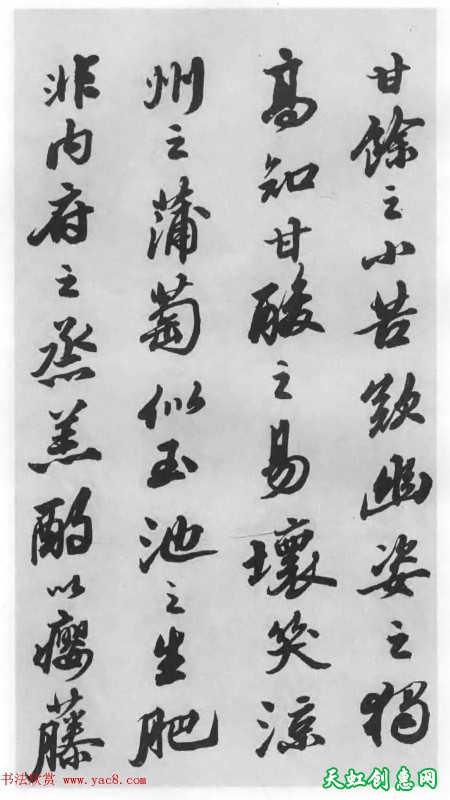 甘餘之小苦歎幽姿之獨
高知甘酸之易壞笑涼
州之蒲萄似玉池之生肥
非內府之烝羔酌以癭藤
书法欣赏 www.yac8.com
天虹创惠网